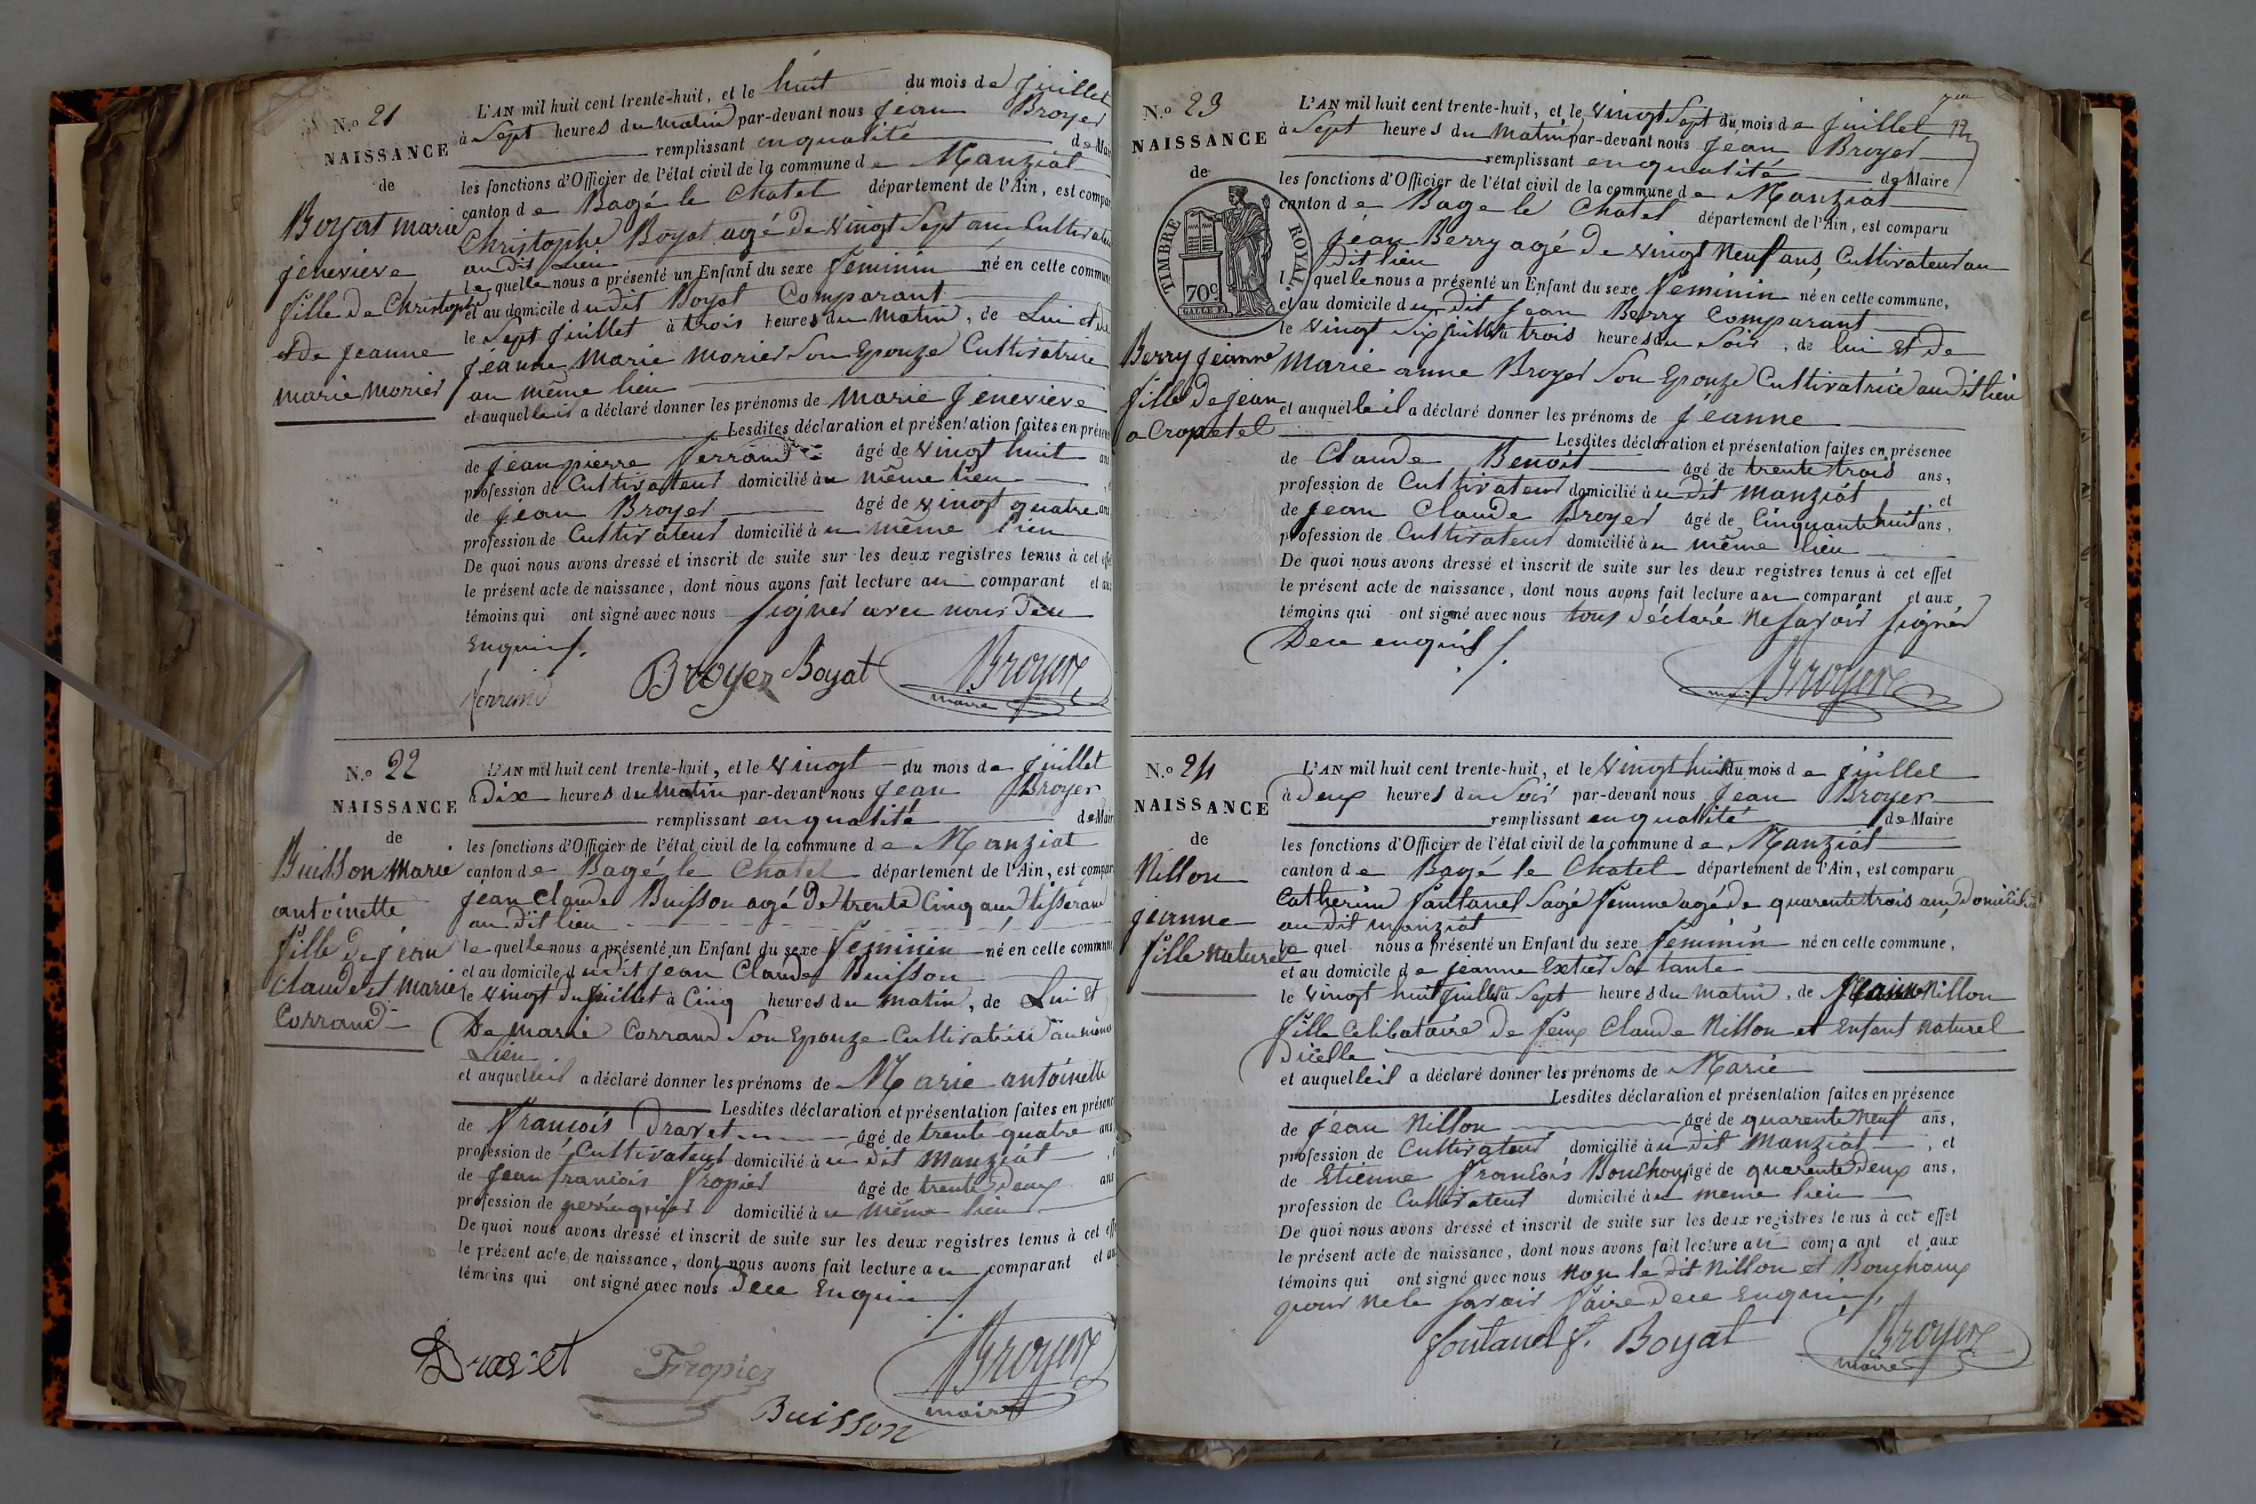 N.o 21
NAISSANCE
de
Boyat marie
jenevieve
fille de Christophe
et de jeanne
marie morier
L'AN mil huit cent trente-huit, et le huit du mois de juillet
à Sept heures du matin par-devant nous Jean Broyer
remplissant en qualité de Mai
les fonctions d'Officier de l'état civil de la commune de Manziat
canton de Bagé le Chatel département de l'Ain, est compar
Christophe Boyat agé de vingt Sept ans Cultivateur
au dit Lieu
le quel nous a présenté un Enfant du sexe feminin né en cette commune
et au domicile du dit Boyat Comparant
le Sept juillet à trois heures du matin, de Lui et de
jeanne marie morier Son Epouze Cultivatrice
au même lieu
et auquel il a déclaré donner les prénoms de marie jenevieve
Lesdites déclaration et présentation faites en présen
de jean pierre ferrand âgé de vingt huit ans
profession de Cultivateur domicilié au même lieu
de jean Broyer âgé de vingt quatre ans
profession de Cultivateur domicilié au même lieu
De quoi nous avons dressé et inscrit de suite sur les deux registres tenus à cet effe
le présent acte de naissance, dont nous avons fait lecture au comparant et au
témoins qui ont signé avec nous signer avec nous Dece
Enquis
ferrand Broyer Boyat Broyer
maire
N.o 22
NAISSANCE
de
Buisson Marie
antoinette
fille de jean
claude et marie
Corrand
L'AN mil huit cent trente-huit, et le vingt du mois de juillet
à dix heures du matin par-devant nous Jean Broyer
remplissant en qualité de Mair
les fonctions d'Officier de l'état civil de la commune de Manziat
canton de Bagé le Chatel département de l'Ain, est compar
jean claude Buisson agé de trente Cinq ans tisserand
au dit lieu
le quel nous a présenté un Enfant du sexe feminin né en cette commune
et au domicile du dit jean Claude Buisson
le vingt du juillet à Cinq heures du matin, de Lui et
De marie Corrand Son Epouze Cultivatrice au même
Lieu
et auquel il a déclaré donner les prénoms de Marie antoinette
Lesdites déclaration et présentation faites en présenc
de françois Dravet âgé de trente quatre ans
profession de Cultivateur domicilié au dit Manziat
de jean françois fropier âgé de trente Deux ans
profession de perruquier domicilié au même lieu
De quoi nous avons dressé et inscrit de suite sur les deux registres tenus à cet eff
le présent acte de naissance, dont nous avons fait lecture au comparant et au
témoins qui ont signé avec nous Dece Enquis
Dravet Fropier Broyer
maire
Buisson
N.o 23
NAISSANCE
de
TIMBRE ROYAL.
70c
GALLE F.
Berry Jeanne
fille de jean
a Cropetel
L'AN mil huit cent trente-huit, et le vingt Sept du mois de juillet
à Sept heures du matin par-devant nous Jean Broyer
remplissant en qualité de Maire
les fonctions d'Officier de l'état civil de la commune de Manziat
canton de Bage le Chatel département de l'Ain, est comparu
jean Berry agé de vingt Neuf ans, Cultivateur au
dit lieu
l quel nous a présenté un Enfant du sexe feminin né en cette commune,
et au domicile du dit jean Berry Comparant
le vingt Six juillet à trois heures du Soir, de lui et de
Marie anne Broyer Son Epouze Cultivatrice au dit lieu
et auquel il a déclaré donner les prénoms de jeanne
Lesdites déclaration et présentation faites en présence
de Claude Benoit âgé de trente trois ans,
profession de Cultivateur domicilié au dit manziat et
de jean Claude Broyer âgé de Cinquante huit ans,
profession de Cultivateur domicilié au même lieu
De quoi nous avons dressé et inscrit de suite sur les deux registres tenus à cet effet
le présent acte de naissance, dont nous avons fait lecture au comparant et aux
témoins qui ont signé avec nous tous déclaré ne savoir signer
Dece enquis
Broyer
maire
N.o 24
NAISSANCE
de
Nillon
jeanne
fille naturel
L'AN mil huit cent trente-huit, et le vingt huit du mois de juillet
à Deux heures du Soir par-devant nous Jean Broyer
remplissant en qualité de Maire
les fonctions d'Officier de l'état civil de la commune de Manziat
canton de Bagé le Chatel département de l'Ain, est comparu
Catherine fontanel Sage femme agé de quarente trois ans Domicilié
au dit manziat
le quel nous a présenté un Enfant du sexe feminin né en cette commune,
et au domicile de jeanne Sa tante
le vingt huit juillet à Sept heures du matin, de Nillon
fille Celibataire de feux Claude Nillon et Enfant naturel
Dicelle
et auquel il a déclaré donner les prénoms de Marie
Lesdites déclaration et présentation faites en présence
de jean Nillon âgé de quarente Neuf ans,
profession de Cultivateur domicilié au dit Manziat, et
de Etienne françois Bouchoux âgé de quarente Deux ans,
profession de Cultivateur domicilié au meme lieu
De quoi nous avons dressé et inscrit de suite sur les deux registres tenus à cet effet
le présent acte de naissance, dont nous avons fait lecture au comparant et aux
témoins qui ont signé avec nous Non le dit Nillon et Bouchoux
pour ne le savoir faire Dece Enquis
fontanel f. Boyat Broyer
maire